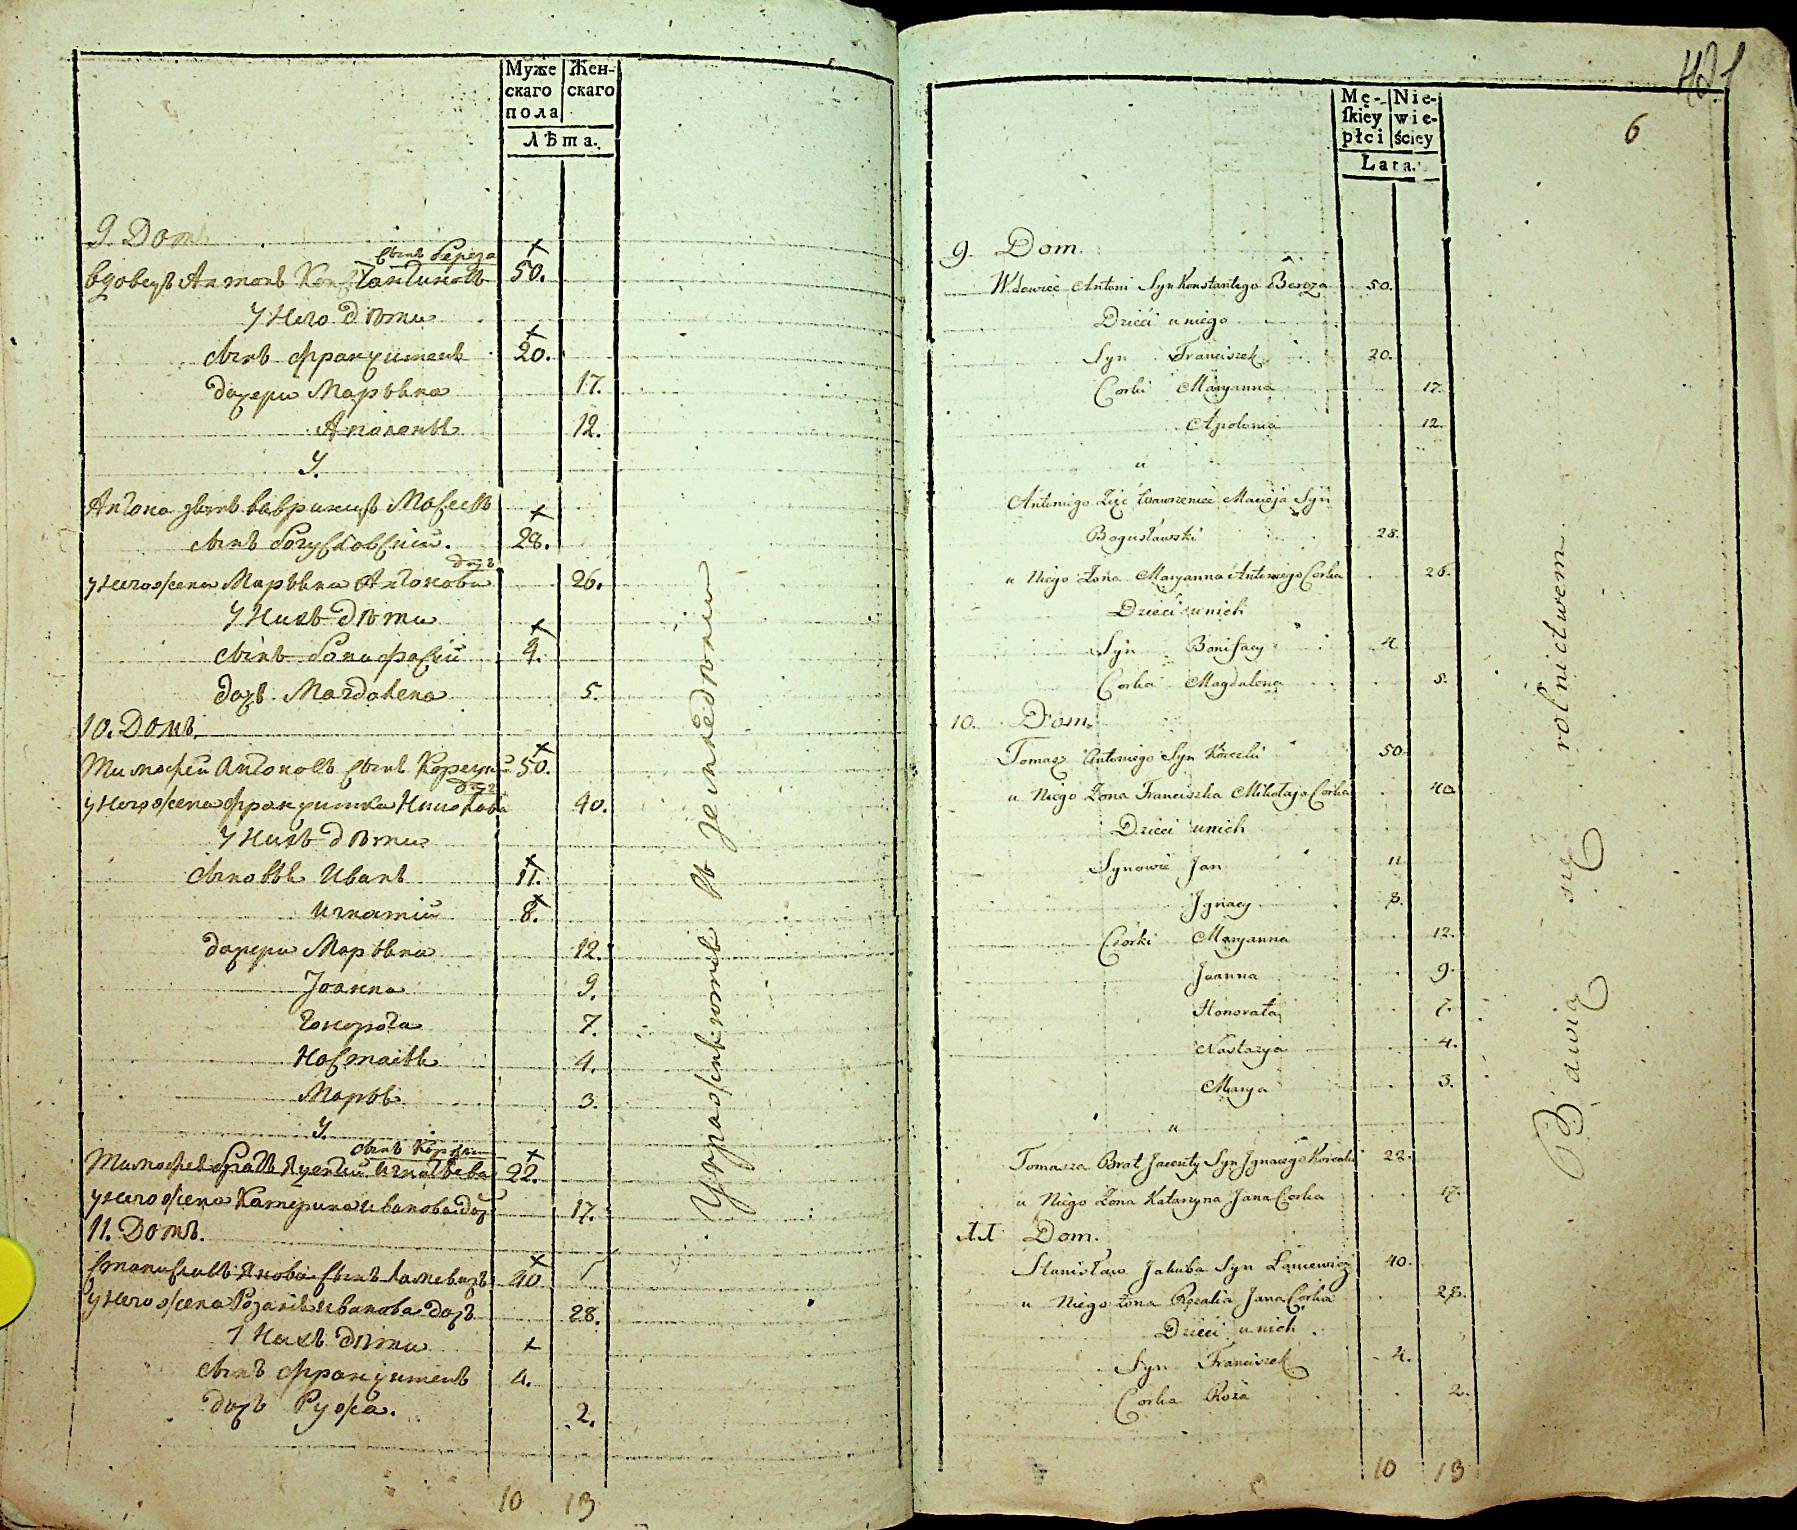 Муже
скаго
пола
Жен-
скаго
Лѣта.
9. Домъ
сынъ Береза
Вдовецъ Антонъ Константиновъ 50.
У Него дѣти
сынъ Францишекъ 20.
дочери Марьяна 17.
Аполонья 12.
У
Антона зять Вавринецъ Мацеевъ
сынъ Богуславский. 28.
дочь
у него жена Марьяна Антонова 26.
У Нихъ дѣти
сынъ Бонифаций 4.
дочь Магдалена 5.
10. Домъ.
Тимофей Антоновъ сынъ 50.
дочь
у Него жена Францишка Николаева 40.
У Нихъ дѣти
сыновья Иванъ 11.
Игнатий 8.
дочери Марьяна 12.
Joанна 9.
Гонората 7.
Настасья 4.
Марья 3.
У
сынъ
Тимофея братъ Яцентий Игнатьева 22.
у него жена Катерина Иванова дочь 17.
11. Домъ.
Станиславъ Якова сынъ Ланевичъ 40
У Него жена Розалия Иванова дочь 28.
У Нихъ дѣти
сынъ Францишекъ 4.
дочь Ружа. 2.
10 13
Упражняются въ земледѣлии
Mę-
skiey
płci
Nie-
wie-
ściey
Lata.
6
9. Dom.
Wdowiec Antoni Syn Konstantego Bereza 50.
Dzieci u niego
Syn Franciszek 20.
Corki Maryanna 17.
Apolonia 12.
u
Antoniego Zięć Wawrzeniec Macieja Syn
Bogusławski 28.
u Niego Żona Maryanna Antoniego Corka 26.
Dzieci u nich
Syn Bonifacy 4.
Corka Magdalena 5.
10. Dom.
Tomasz Antoniego Syn 50.
u Niego Żona Franciszka Mikołaja Corka 40.
Dzieci u nich
Synowie Jan 11
Jgnacy 8.
Corki Maryanna 12.
Joanna 9.
Honorata 7.
Nastazya 4.
Marya 3.
u
Tomasza Brat Jacenty Syn Jgnacego 22.
u Niego Żona Katarzyna Jana Corka 17.
11 Dom.
Stanisław Jakuba Syn Łaniewicz 40.
u Niego Żona Rozalia Jana Corka 28.
Dzieci u nich
Syn Franciszek 4.
Corka Roża 2.
10 13
Bawią się rolnictwem